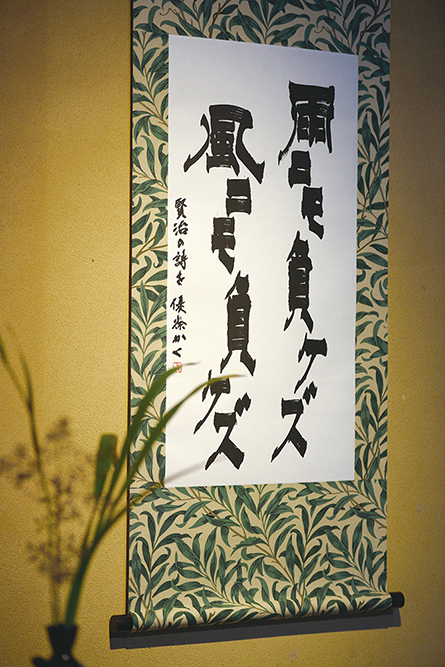 雨ニモ負ケズ
風ニモ負ケズ
賢治の詩を 優かく